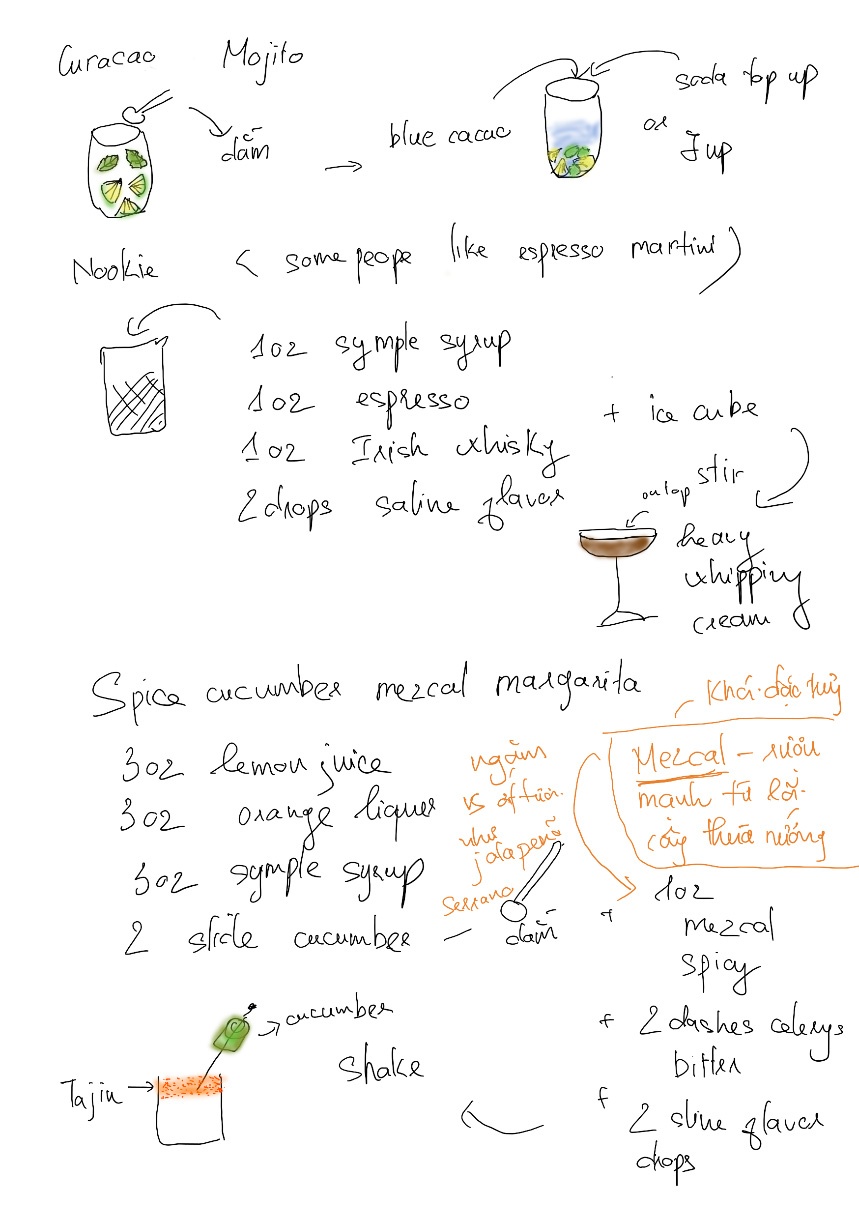 Curacao Mojito
dầm
blue cacao
soda top up
or
7up
Nookie < some peope like espresso martini)
1oz symple syrup
1oz espresso
1oz Irish whisky
2 drops saline flavor
+ ice cube
stir
on top
heavy
whipping
cream
Spice cucumber mezcal margarita
3oz lemon juice
3oz orange liquer
3oz symple syrup
2 slide cucumber
dầm
ngâm
vs ớt tươi
như
jalapeño
Serrano
Khá đặc
Mezcal – rượu
mạnh từ lõi
cây thùa nướng
+ 1oz
mezcal
spicy
+ 2 dashes celerys
bitter
+ 2 sline flavor
drops
shake
cucumber
Tajin